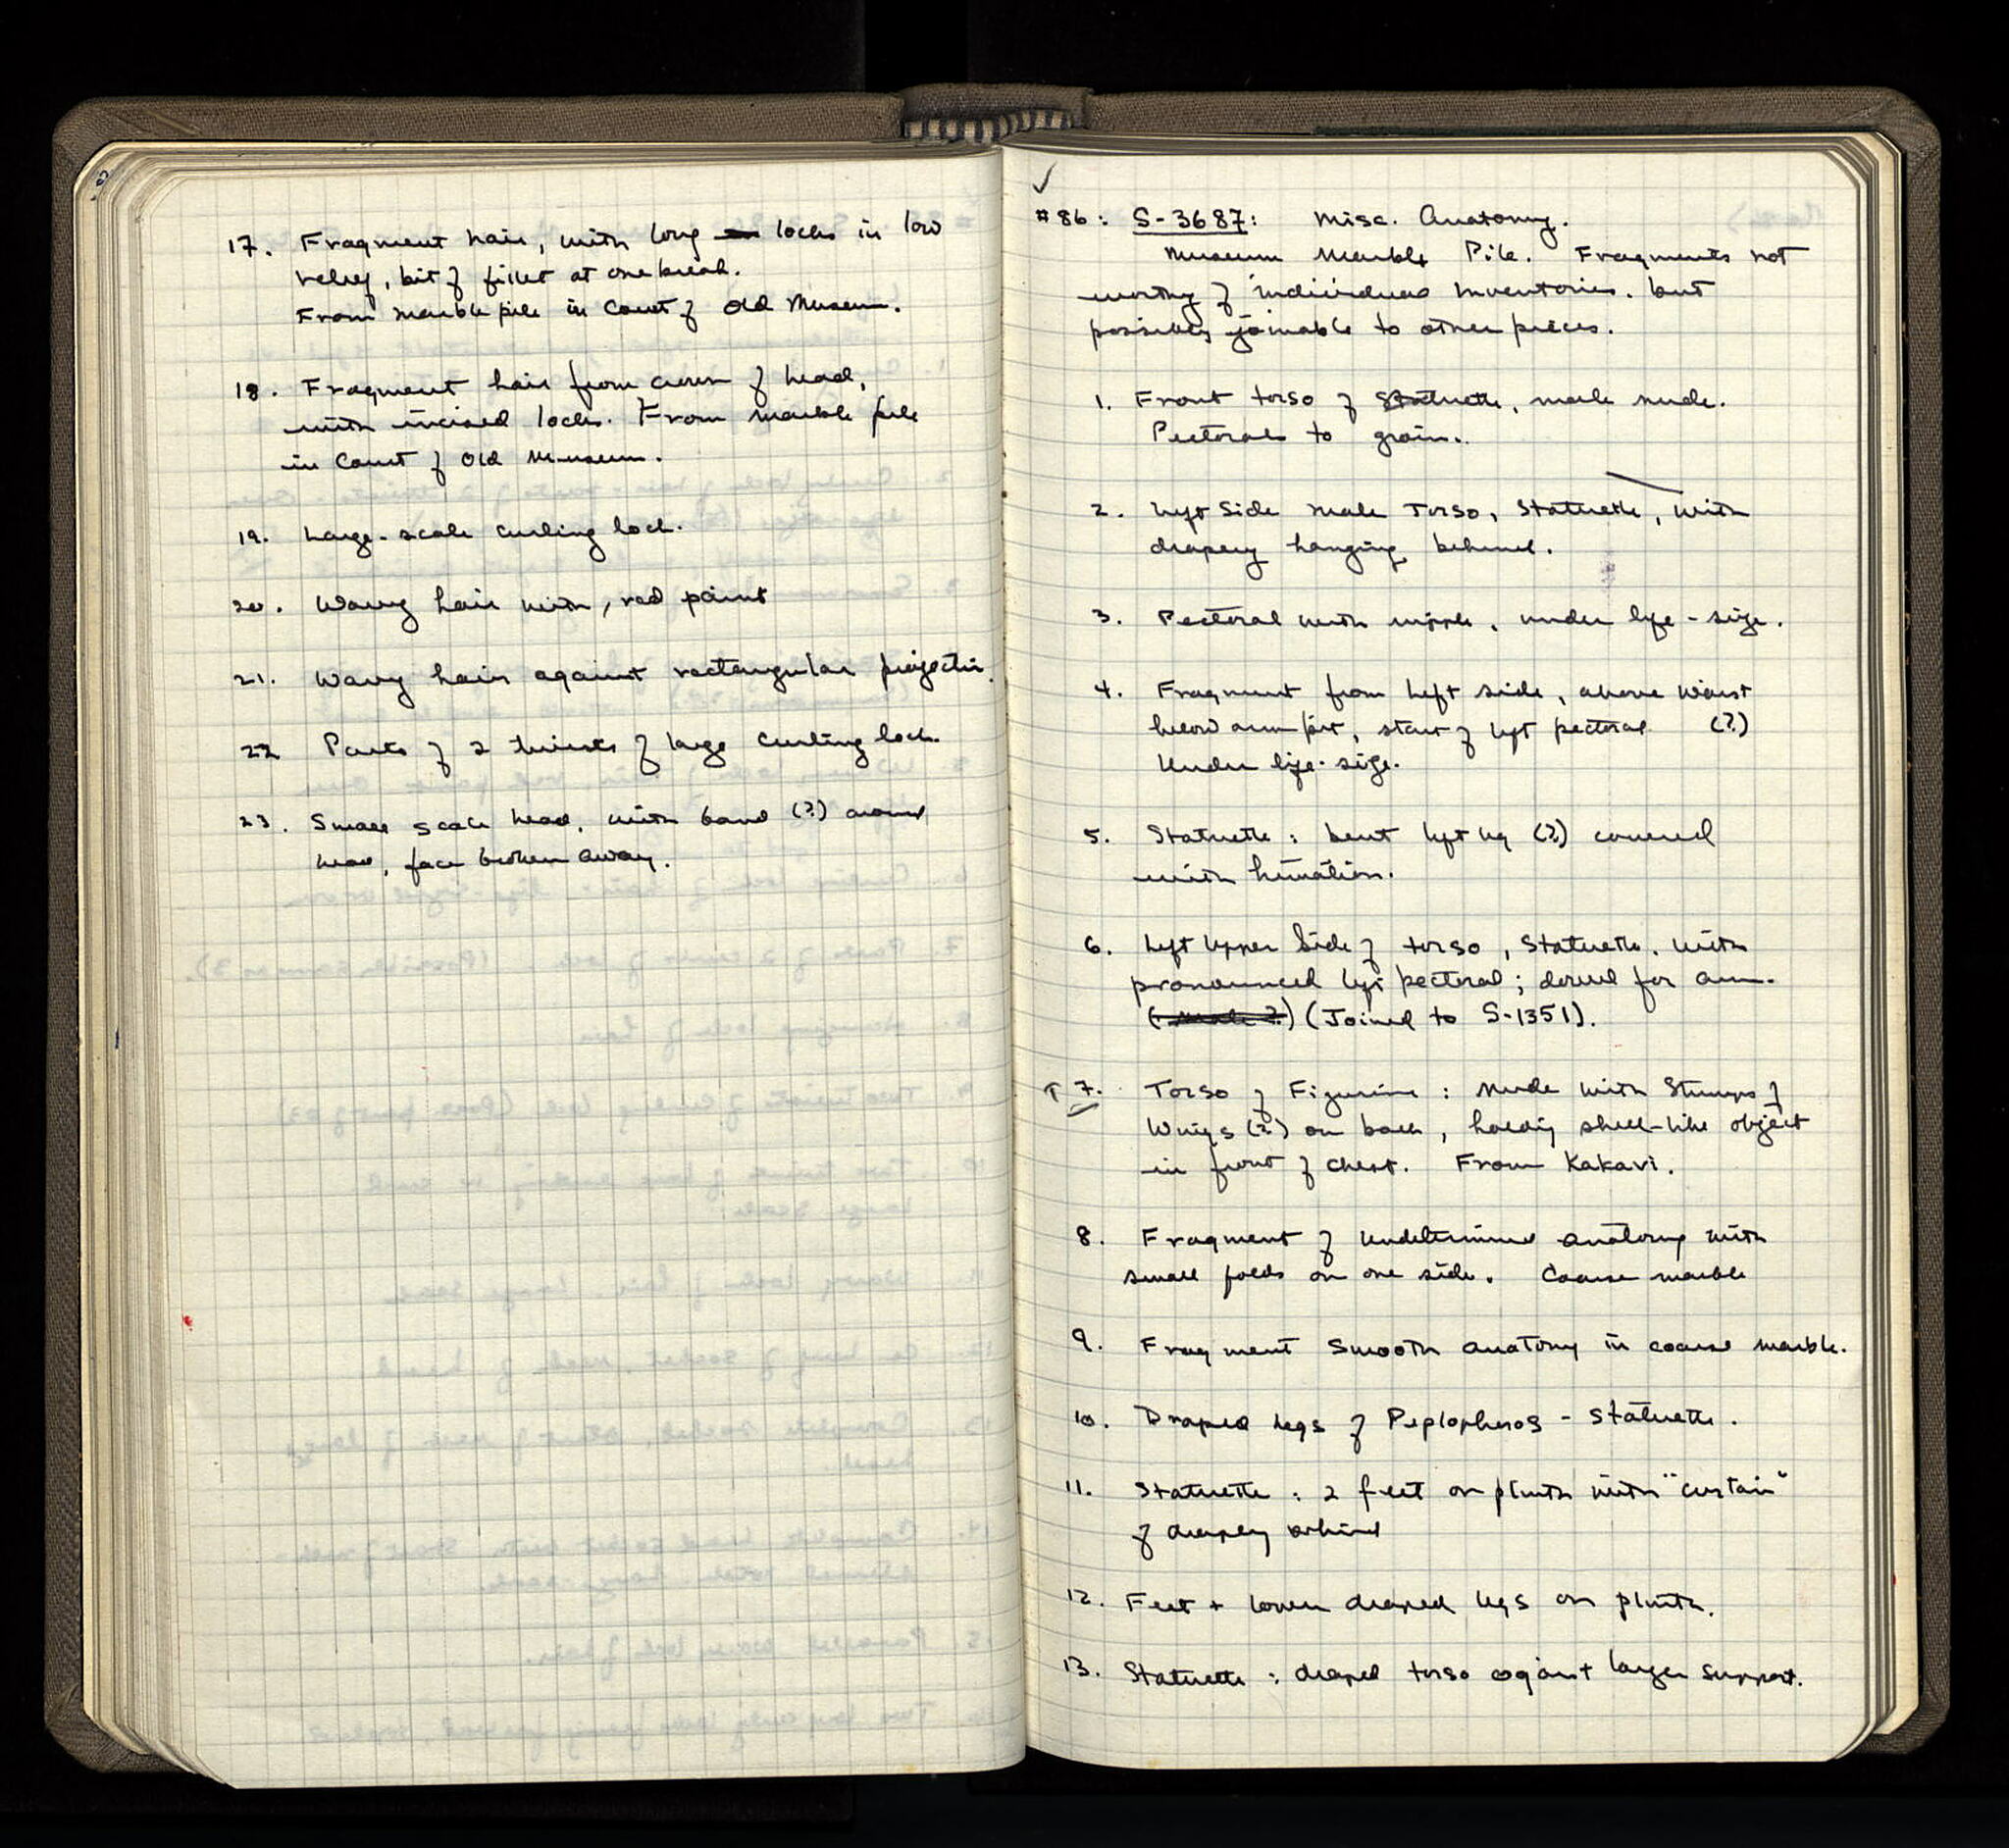 17. Fragment hair, with long locks in low
relief, bit of fillet at one break.
From marble pile in Court of Old Museum.
18. Fragment hair from crown of head,
with incised locks. From marble pile
in Court of Old Museum.
19. Large-scale curling lock.
20. Wavy hair with, red paint
21. Wavy hair against rectangular projection.
22 Parts of 2 twists of large curling lock.
23. Small scale head, with band (?) around
head, face broken away.
✓
#86: S-3687: Misc. Anatomy.
Museum Marble Pile. Fragments not
worthy of individual inventories. but
possibly joinable to other pieces.
1. Front torso of statuette, male nude.
Pectorals to groin.
2. Left Side male Torso, Statuette, with
drapery hanging behind.
3. Pectoral with nipple, under life-size.
4. Fragment from left side, above waist
below arm pit, start of left pectoral (?)
Under life-size.
5. Statuette: bent left leg (?) covered
with himation.
6. Left Upper Side of torso, Statuette. with
pronounced left pectoral; dowel for arm.
(Male?) (Joined to S-1351).
T 7. Torso of Figurine: Nude with Stumps of
Wings (?) on back, holding shell-like object
in front of chest. From Kakavi.
8. Fragment of undetermined anatomy with
small folds on one side. Coarse marble
9. Fragment Smooth anatomy in coarse marble.
10. Draped legs of Peplophoros - Statuette.
11. Statuette: 2 feet on plinth with "curtain"
of drapery behind
12. Feet + lower draped legs on plinth.
13. Statuette: draped torso against larger support.